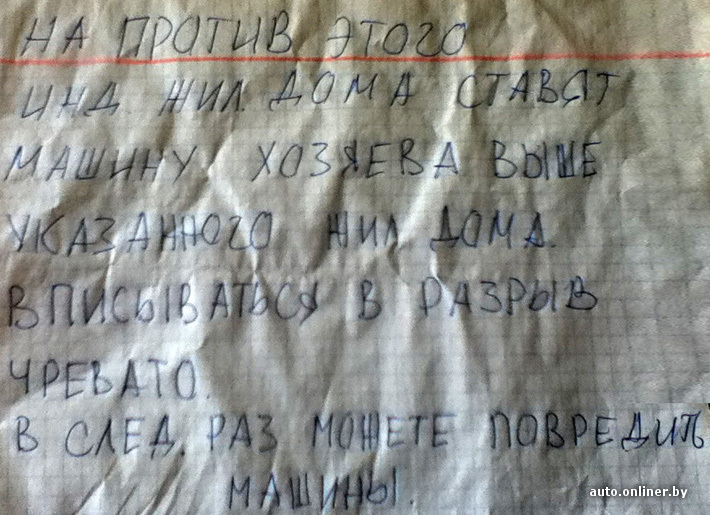 НА ПРОТИВ ЭТОГО
ИНД. ЖИЛ. ДОМА СТАВЯТ
МАШИНУ ХОЗЯЕВА ВЫШЕ
УКАЗАННОГО ЖИЛ. ДОМА.
ВПИСЫВАТЬСЯ В РАЗРЫВ
ЧРЕВАТО.
В СЛЕД. РАЗ МОЖЕТЕ ПОВРЕДИТЬ
МАШИНЫ.
auto.onliner.by